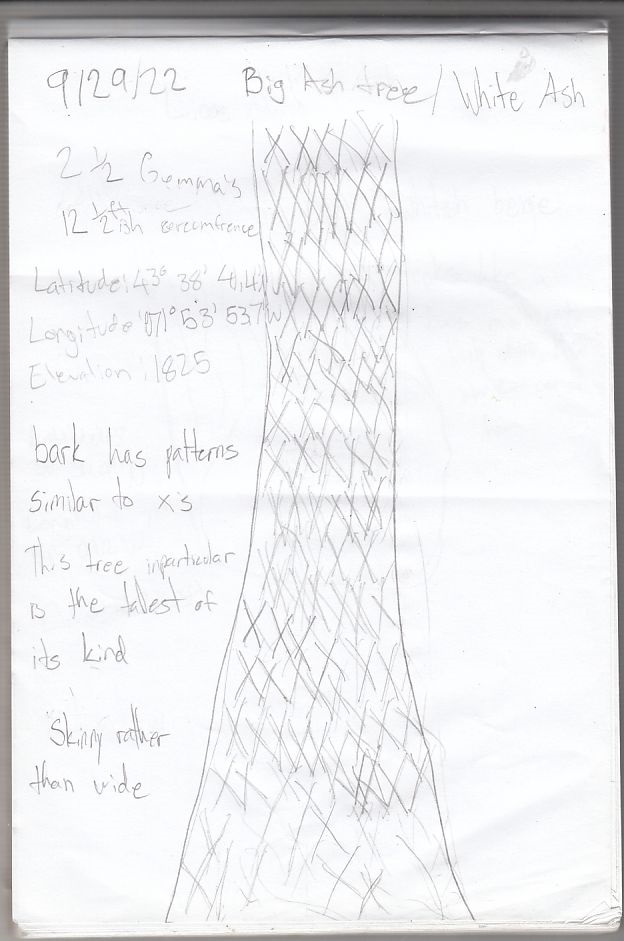 9/29/22 Big Ash tree / White Ash
2 1/2 Gemma's
12 1/2 ft ish cercomfrence
Latitude: 43° 38'
Longitude: 071° 53' 53.7"W
Elevation: 1825
bark has patterns
similar to x's
This tree inparticular
is the talest of
its kind
Skinny rather
than wide